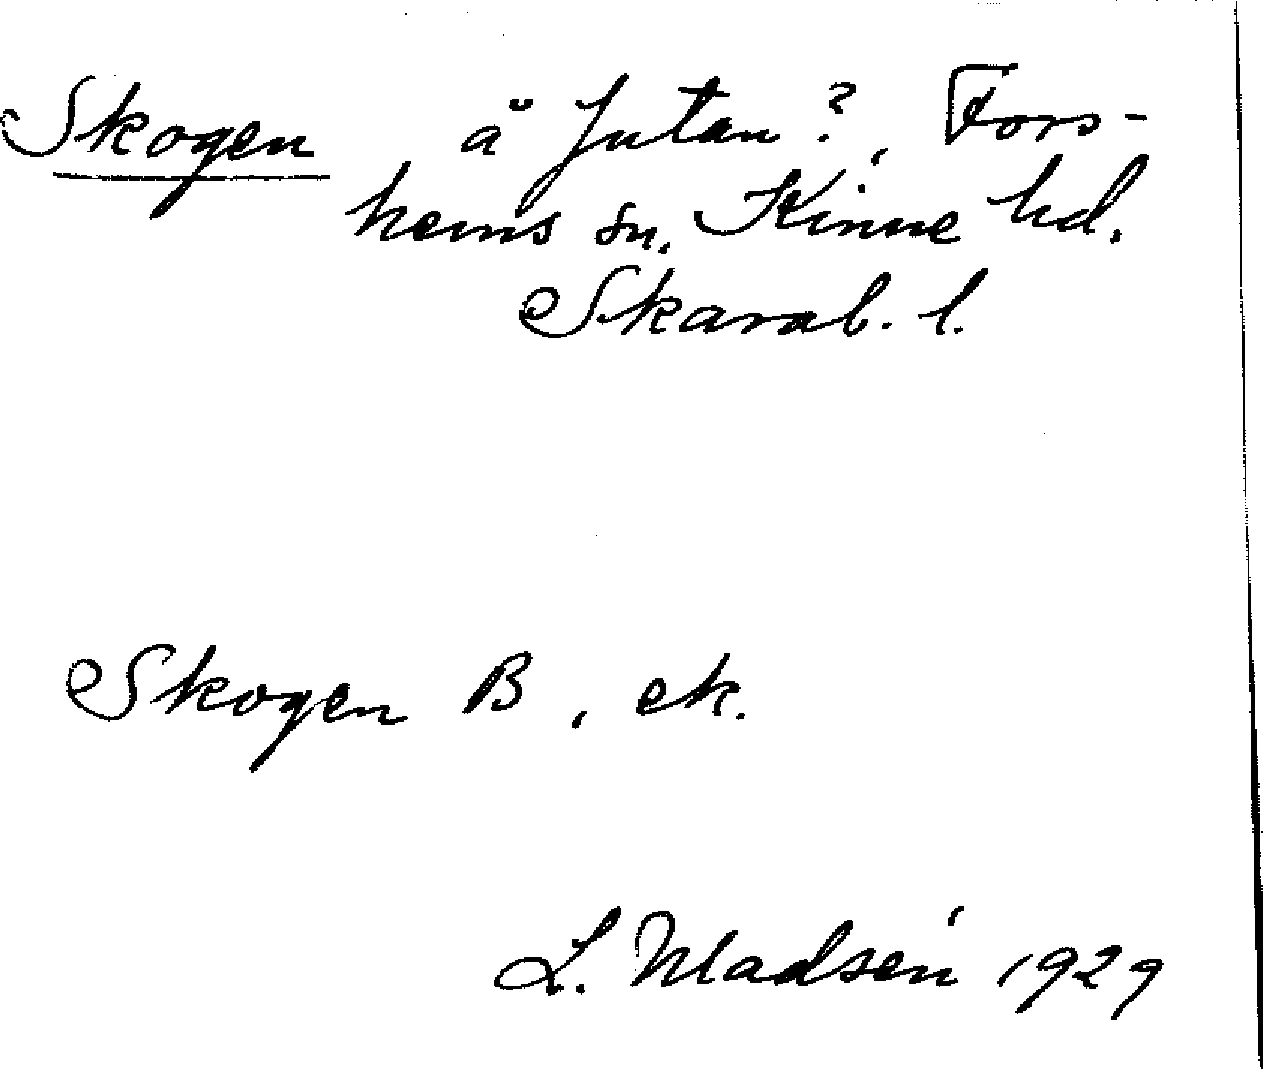 Skogen å Jutan?, Fors-
hems sn. Kinne hd.
Skarab. l.
Skogen B, ek.
L. Madsén 1929